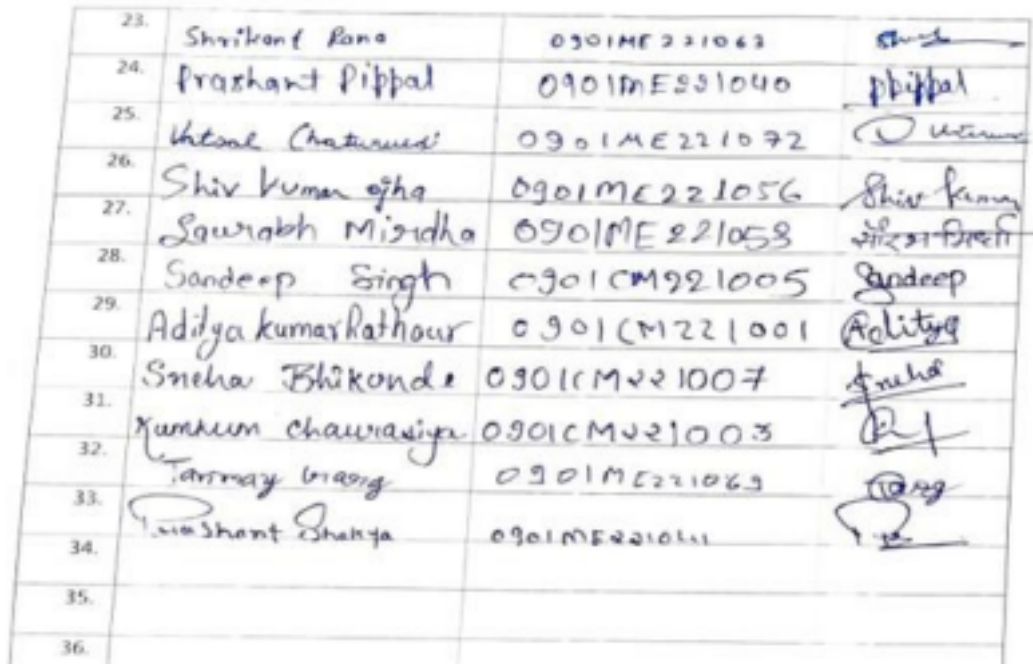 23. Shrikant Rana 0901ME221063
24. Prashant Pippal 0901ME221040 ppippal
25. Vatsal Chaturvedi 0901ME221072
26. Shiv kumar ojha 0901ME221056 Shiv Kumar
27. Saurabh Mirdha 0901ME221053
28. Sandeep Singh 0901CM221005 Sandeep
29. Aditya kumar Rathour 0901CM221001 Aditya
30. Sneha Bhikonde 0901CM221007 Sneha
31. Kumkum chaurasiya 0901CM221003
32. Tanmay Garg 0901ME221069
33. Prashant Shakya 0901ME221041
34.
35.
36.